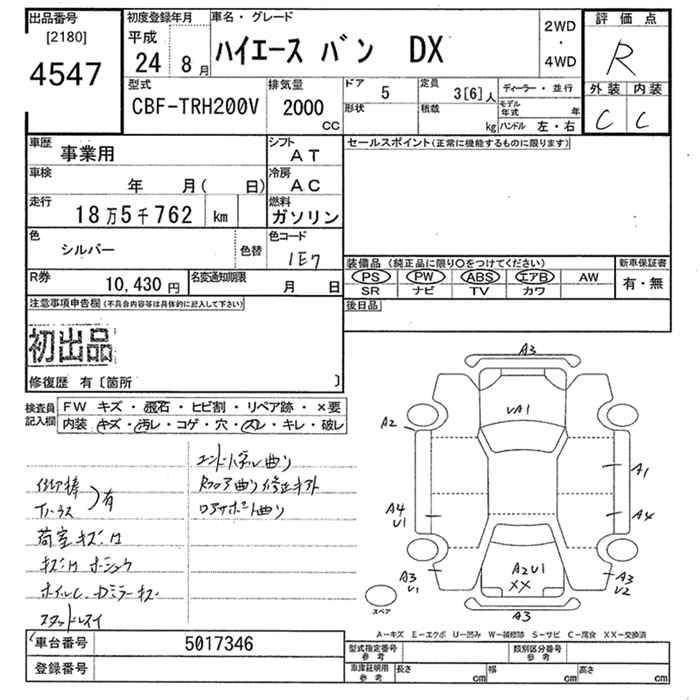 出品番号
[2180]
4547
初度登録年月
平成
24 8月
車名・グレード
ハイエース バン DX
2WD
・
4WD
評価点
R
外装 内装
C C
型式
CBF-TRH200V
排気量
2000
CC
ドア 5
形状
定員 3[6]人
積載
kg
ディーラー・並行
モデル年式 年
ハンドル 左・右
車歴 事業用
シフト
AT
車検 年 月( 日)
冷房
AC
走行 18万5千762 km
燃料
ガソリン
色 シルバー
色替
色コード
1E7
R券 10,430円
名変通知期限 月 日
セールスポイント(正常に機能するものに限ります)
装備品(純正品に限り○をつけてください)
PS PW ABS エアB AW
SR ナビ TV カワ
新車保証書
有・無
後日品
注意事項申告欄(不具合内容等は具体的に記入して下さい)
初出品
修復歴 有〔箇所 〕
検査員記入欄
FW キズ・飛石・ヒビ割・リペア跡・×要
内装・キズ・汚レ・コゲ・穴・スレ・キレ・破レ
エンドパネル曲り
有
荷室キズ凹
A3
VA1
A2
A1
A4
U1
A4
A3
U1
A2U1
XX
A3
U2
A3
スペア
A-キズ E-エクボ U-凹み W-補修跡 S-サビ C-腐食 XX-交換済
車台番号 5017346
登録番号
型式指定番号
参考
類別区分番号
参考
車庫証明用
参考
長さ cm
幅 cm
高さ cm